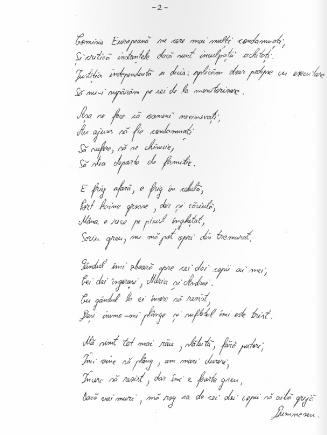 -2-
Comisia Europeană ne cere mai mulți condamnați,
Și critică instanțele dacă sunt inculpații achitați.
Justiția independentă e doar: aplicăm doar pedepse cu executare
Să nu-i supărăm pe cei de la monitorizare.
Așa ne fac să oameni nevinovați,
Au ajuns să fie condamnați
Să sufere, să ne chinuie,
Să stea departe de familie.
E frig afară, e frig în celulă,
Port haine groase, dar și căciulă,
Mâna e rece pe pixul înghețat,
Scriu greu, nu mă pot opri din tremurat,
Gândul îmi zboară spre cei doi copii ai mei,
Cei doi îngerași, Maria și Andrei.
Cu gândul la ei încerc să rezist,
Deși inima-mi plânge și sufletul îmi este trist.
Mă simt tot mai rău, slăbită, fără putere,
Îmi vine să plâng, am mari dureri,
Încerc să rezist, dar îmi e foarte greu,
Dacă voi muri, mă rog ca de cei doi copii să aibă grijă
Dumnezeu.